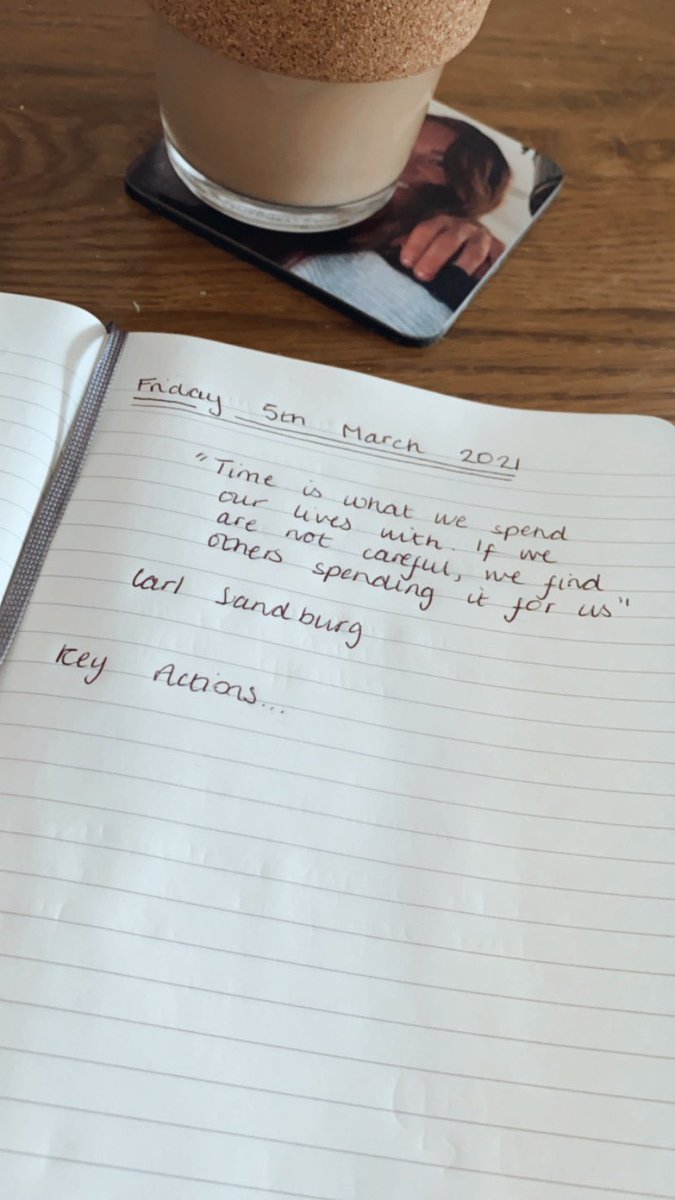 Friday 5th March 2021
"Time is what we spend
our lives with. If we
are not careful, we find
others spending it for us"
Carl Sandburg
Key Actions...